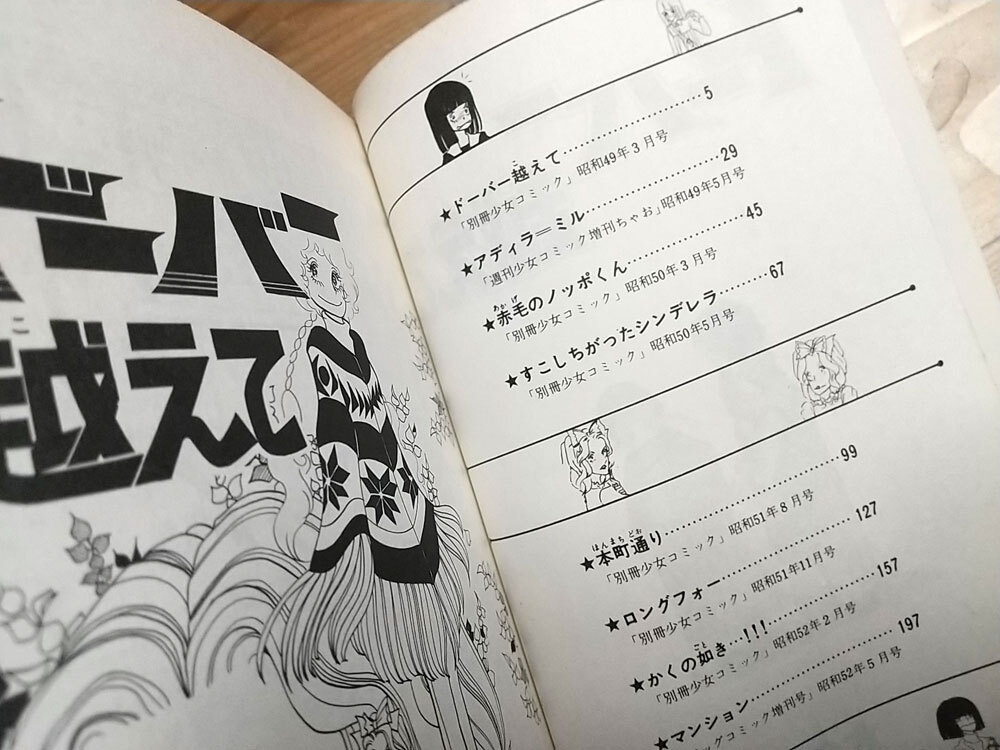 ドーバー
越えて
★ドーバー越えて……………5
「別冊少女コミック」昭和49年3月号
★アディラ＝ミル……………29
「週刊少女コミック増刊ちゃお」昭和49年5月号
★赤毛のノッポくん……………45
「別冊少女コミック」昭和50年3月号
★すこしちがったシンデレラ……67
「別冊少女コミック」昭和50年5月号
★本町通り……………99
「別冊少女コミック」昭和51年8月号
★ロングフォー……………127
「別冊少女コミック」昭和51年11月号
★かくの如き…!!!……………157
「別冊少女コミック」昭和52年2月号
★マンション……………197
コミック増刊号」昭和52年5月号